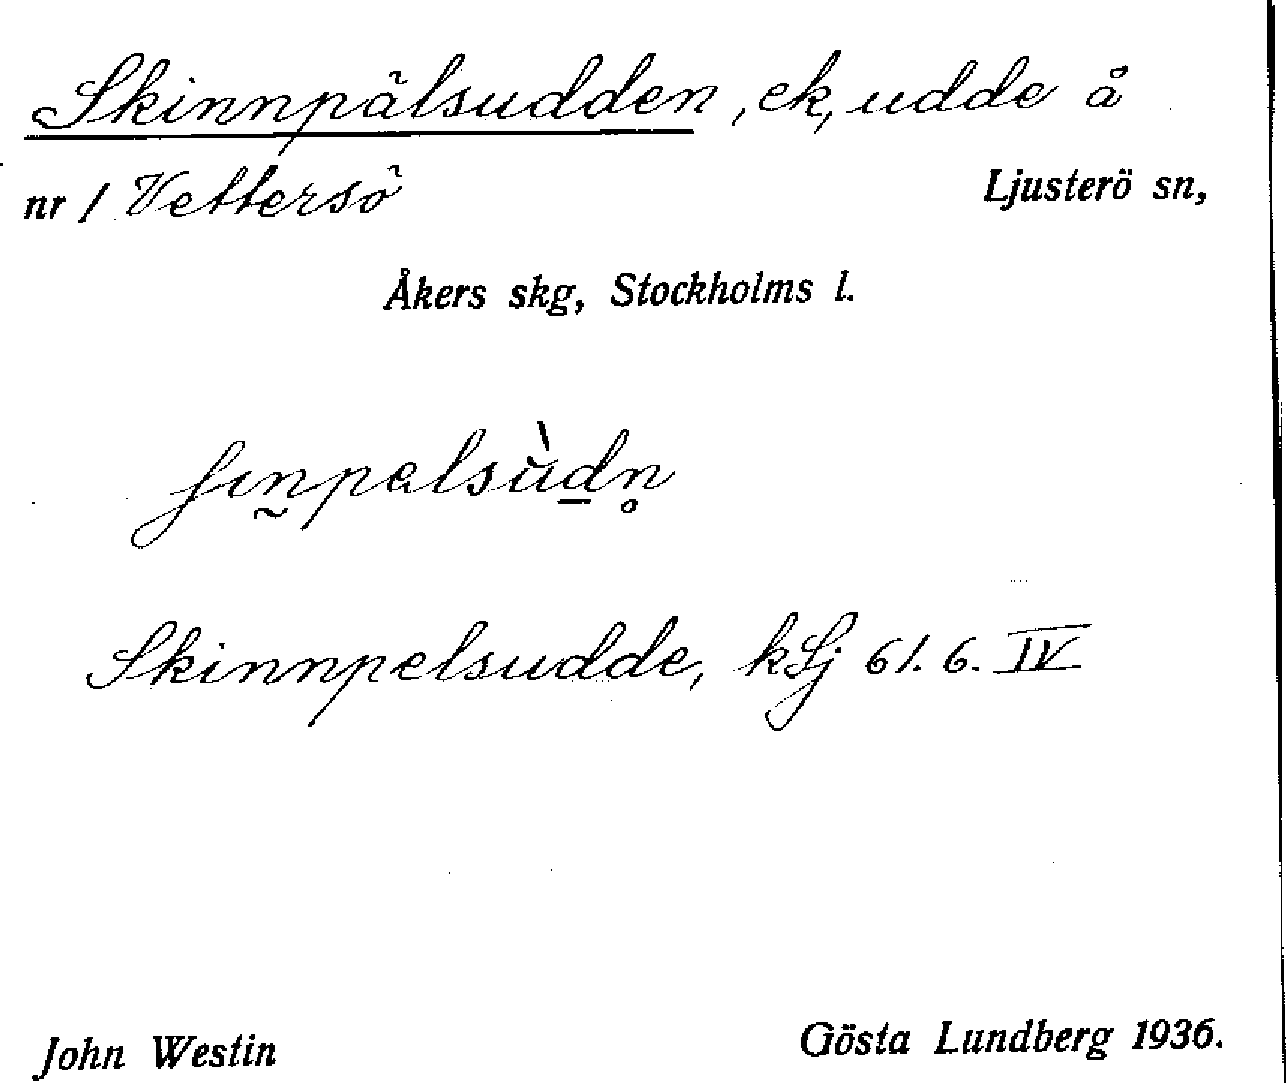 Skinnpälsudden, ek, udde å
nr 1 Vettersö Ljusterö sn,
Åkers skg, Stockholms l.
Skinnpelsudde, kLj 61. 6. IV
John Westin Gösta Lundberg 1936.